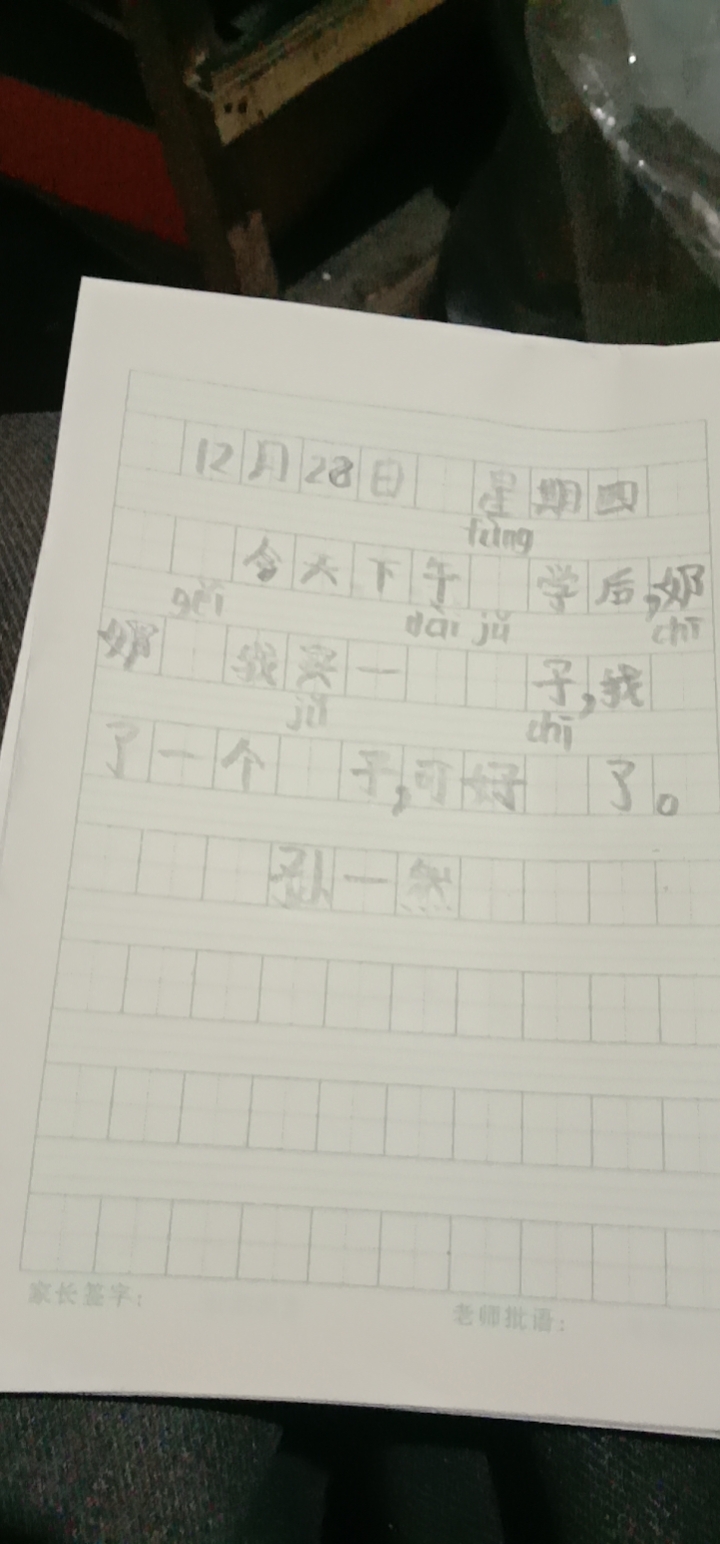 12月28日 星期四
fàng
今天下午 学后,奶
gěi dài jú chī
奶 我买一 子,我
jú chī
了一个 子,可好 了。
孙一然
家长签字:
老师批语: